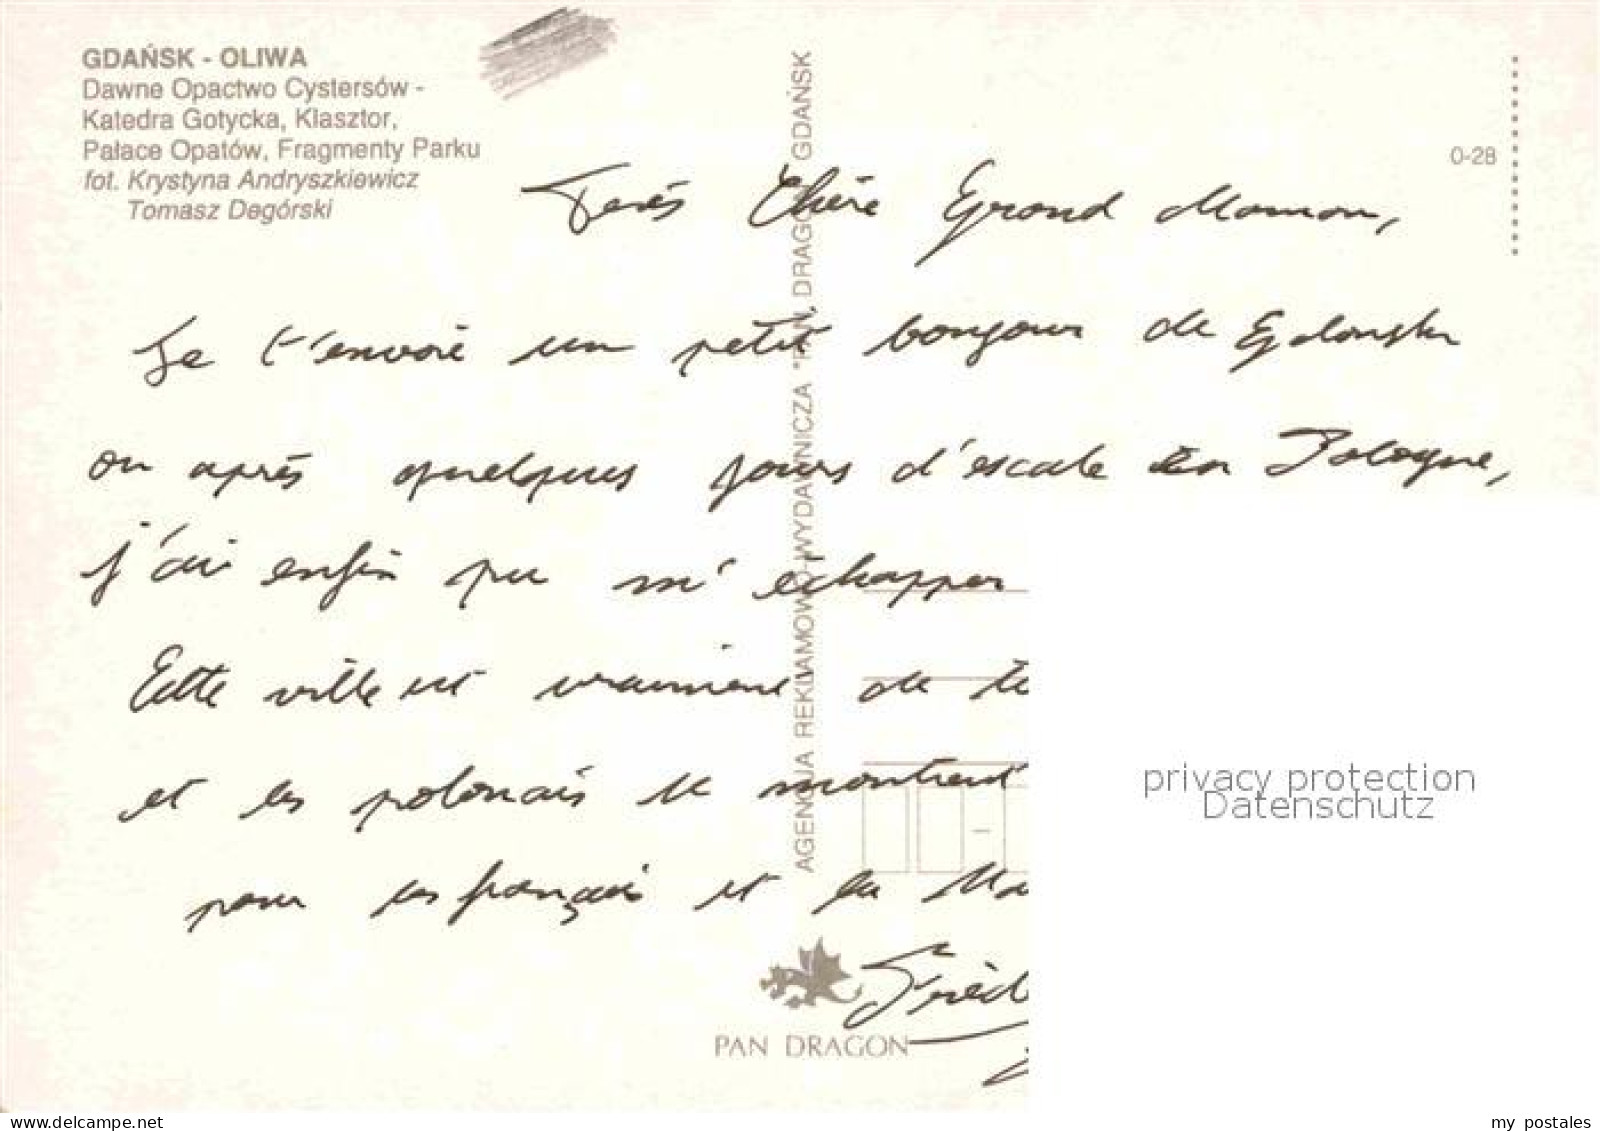 GDAŃSK - OLIWA
Dawne Opactwo Cystersów -
Katedra Gotycka, Klasztor,
Pałace Opatów, Fragmenty Parku
fot. Krystyna Andryszkiewicz
Tomasz Degórski
0-28
AGENCJA REKLAMOWO-WYDAWNICZA "PAN DRAGON" GDAŃSK
Très Chère Grand Maman,
Je t'envoie un petit bonjour de Gdansk
ou après quelques jours d'escale en Pologne,
j'ai enfin pu m'échapper
Cette ville est vraiment de
et les polonais se montrent
pour les français et la
Fréd
PAN DRAGON
privacy protection
Datenschutz
www.delcampe.net
my_postales